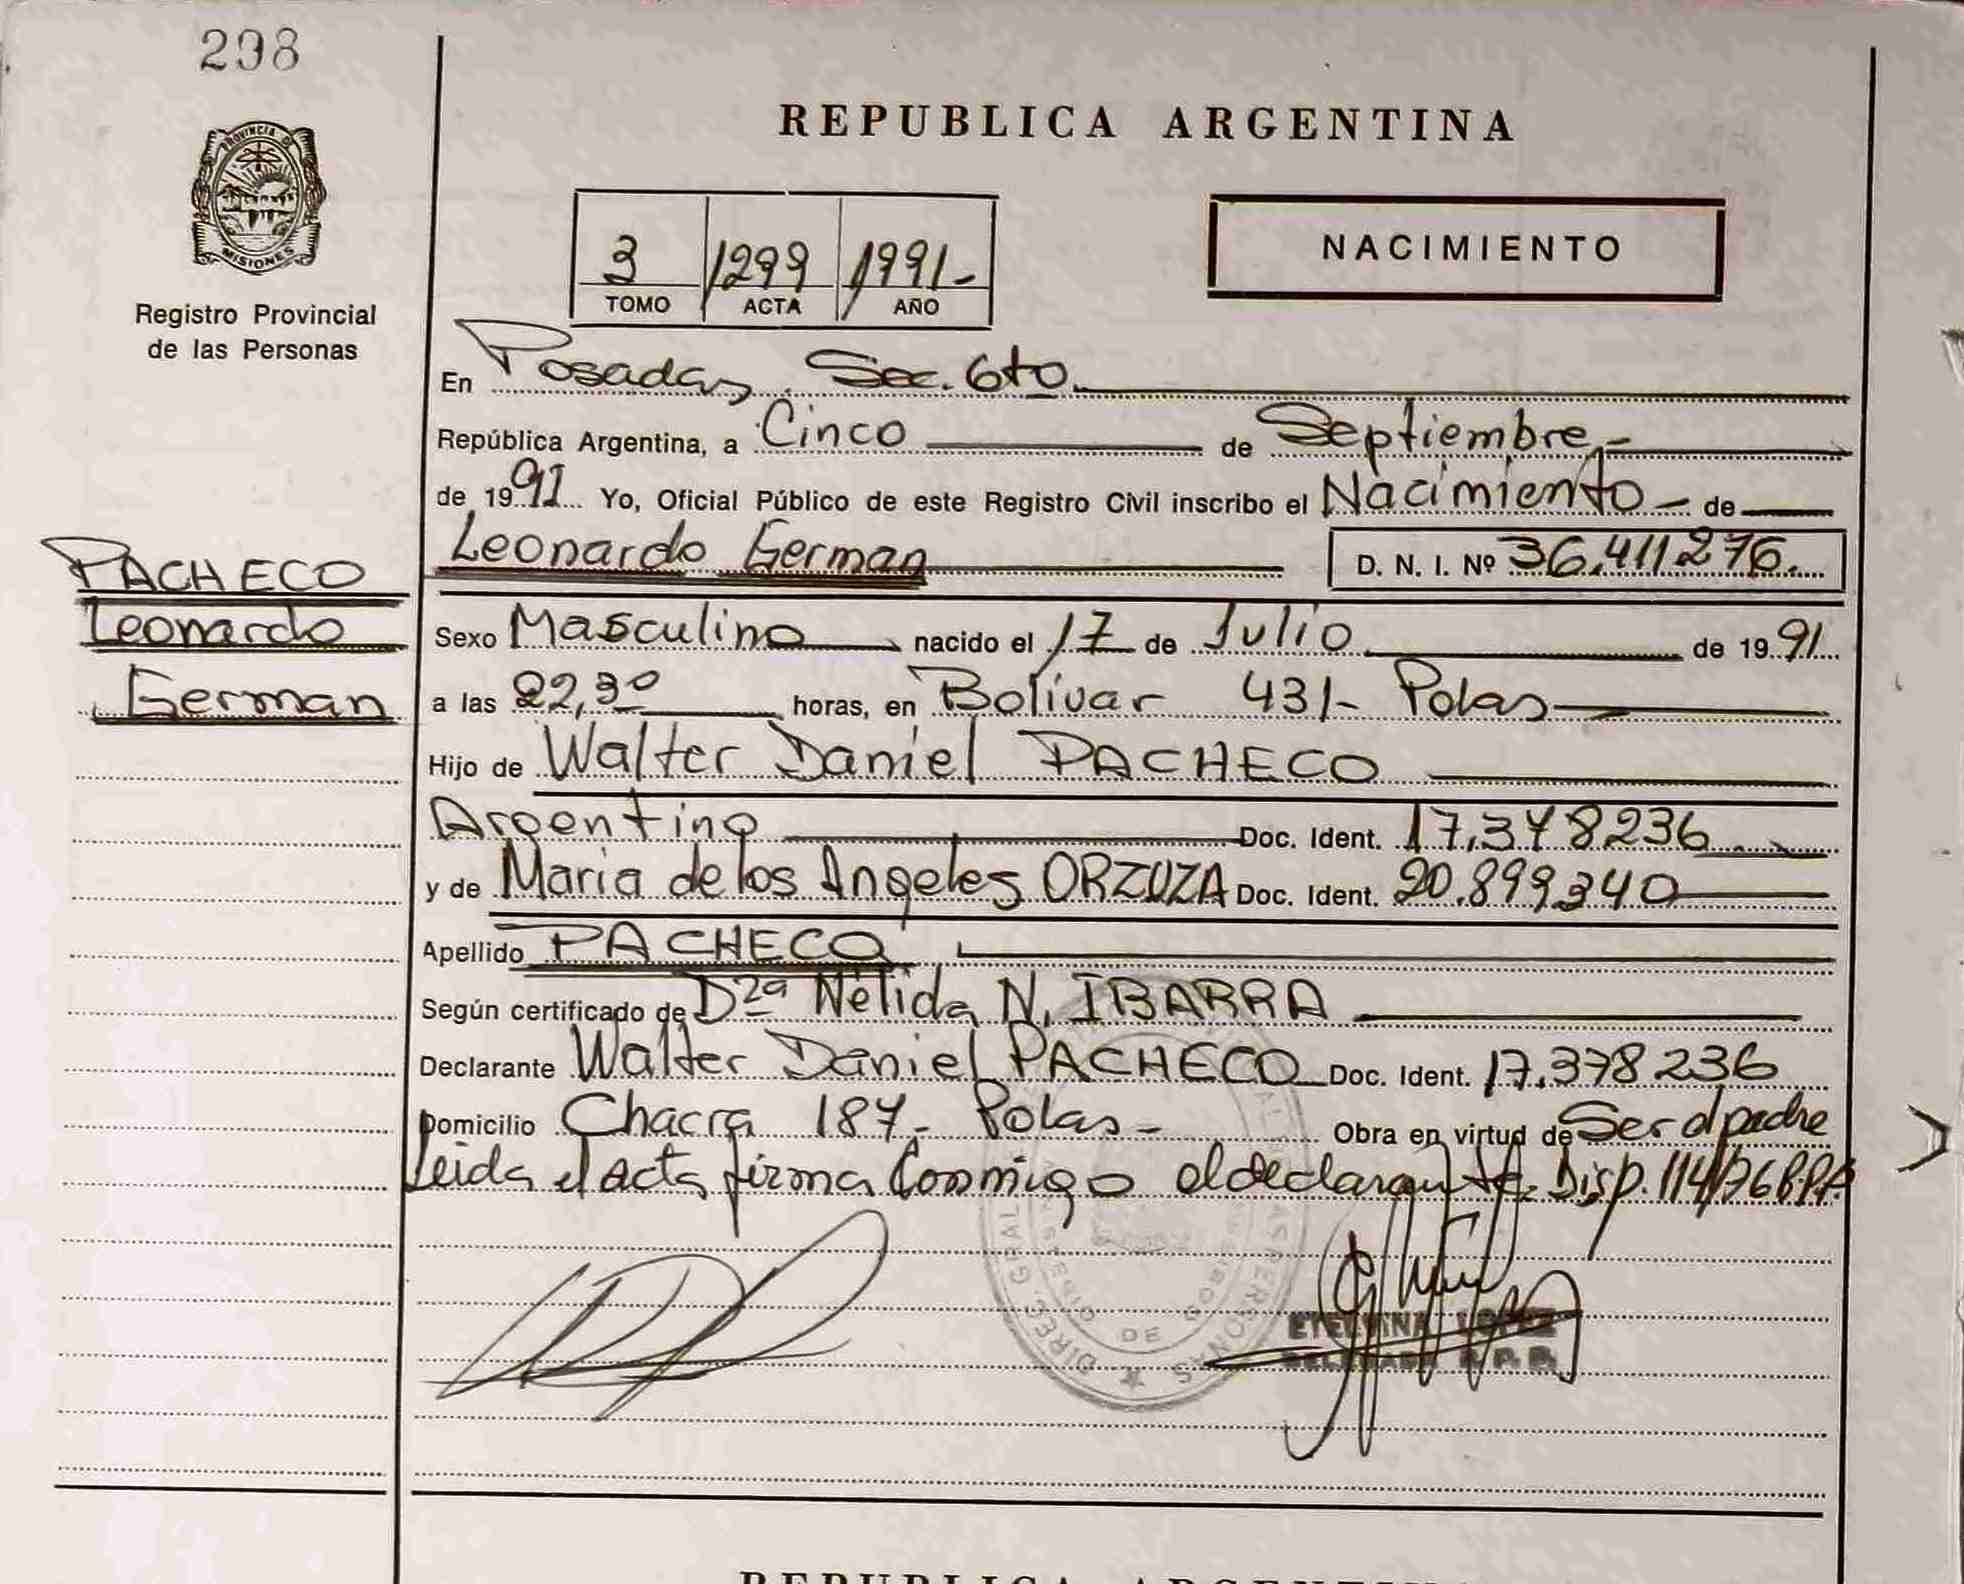 298
PROVINCIA DE
MISIONES
Registro Provincial
de las Personas
PACHECO
Leonardo
German
REPUBLICA ARGENTINA
3 1299 1991-
TOMO ACTA AÑO
NACIMIENTO
En Posadas, Sec. 6to
República Argentina, a Cinco de Septiembre,-
de 1991 Yo, Oficial Público de este Registro Civil inscribo el Nacimiento - de
Leonardo German D. N. I. Nº 36.411276.
Sexo Masculino nacido el 17 de Julio de 1991
a las 22,30 horas, en Bolívar 431- Pdas
Hijo de Walter Daniel PACHECO
Argentino Doc. Ident. 17.378236
y de Maria de los Angeles ORZUZA Doc. Ident. 20.899340
Apellido PACHECO
Según certificado de Dra Nélida N. IBARRA
Declarante Walter Daniel PACHECO Doc. Ident. 17.378236
Domicilio Chacra 187,- Pdas- Obra en virtud de Ser el padre
Leida el acta firma Conmigo el declarante. Disp. 114/76 R.P.P.
ETELVINA LOPEZ
DELEGADA R.P.P.
REPUBLICA ARGENTINA